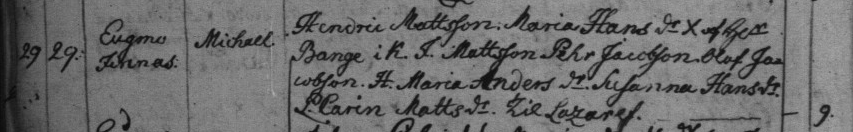 29 29. Eugmo Michael Hendric Mattsson. Maria Hans dr X af Hr
Finnas. Bange i K. J. Mattsson Pehr Jacobson. Olof Ja=
cobson. H. Maria Anders dr. Susanna Hans dr.
P. Carin Matts dr. Zil Lazaref. — 9.